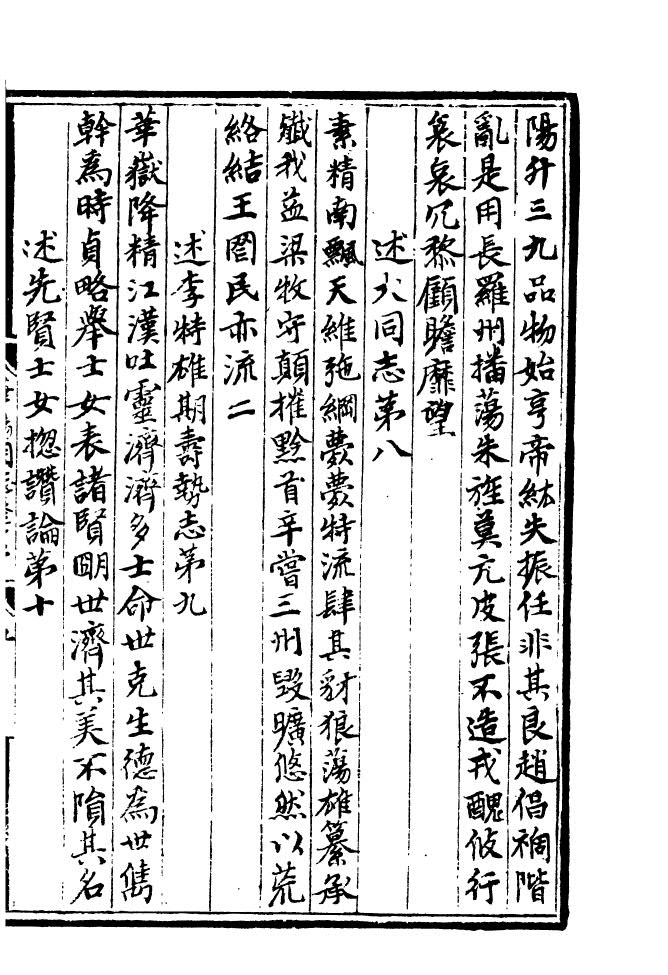 陽升三九品物始亨帝紘失振任非其良趙倡禍階
亂是用長羅州播蕩朱旌莫亢皮張不造戎醜攸行
裒哀冗黎顧瞻靡望
述大同志苐八
素精南飄天維弛綱薨薨特流肆其豺狼蕩雄纂承
殲我益梁牧守顛摧黔首卒嘗三州毀曠悠然以荒
絡結王罔民亦流亡
述李特雄期壽勢志苐九
華嶽降精江漢吐靈濟濟多士命世克生德為世雋
幹為時貞略舉士女表諸賢明世濟其美不隕其名
述先賢士女揔讚論苐十